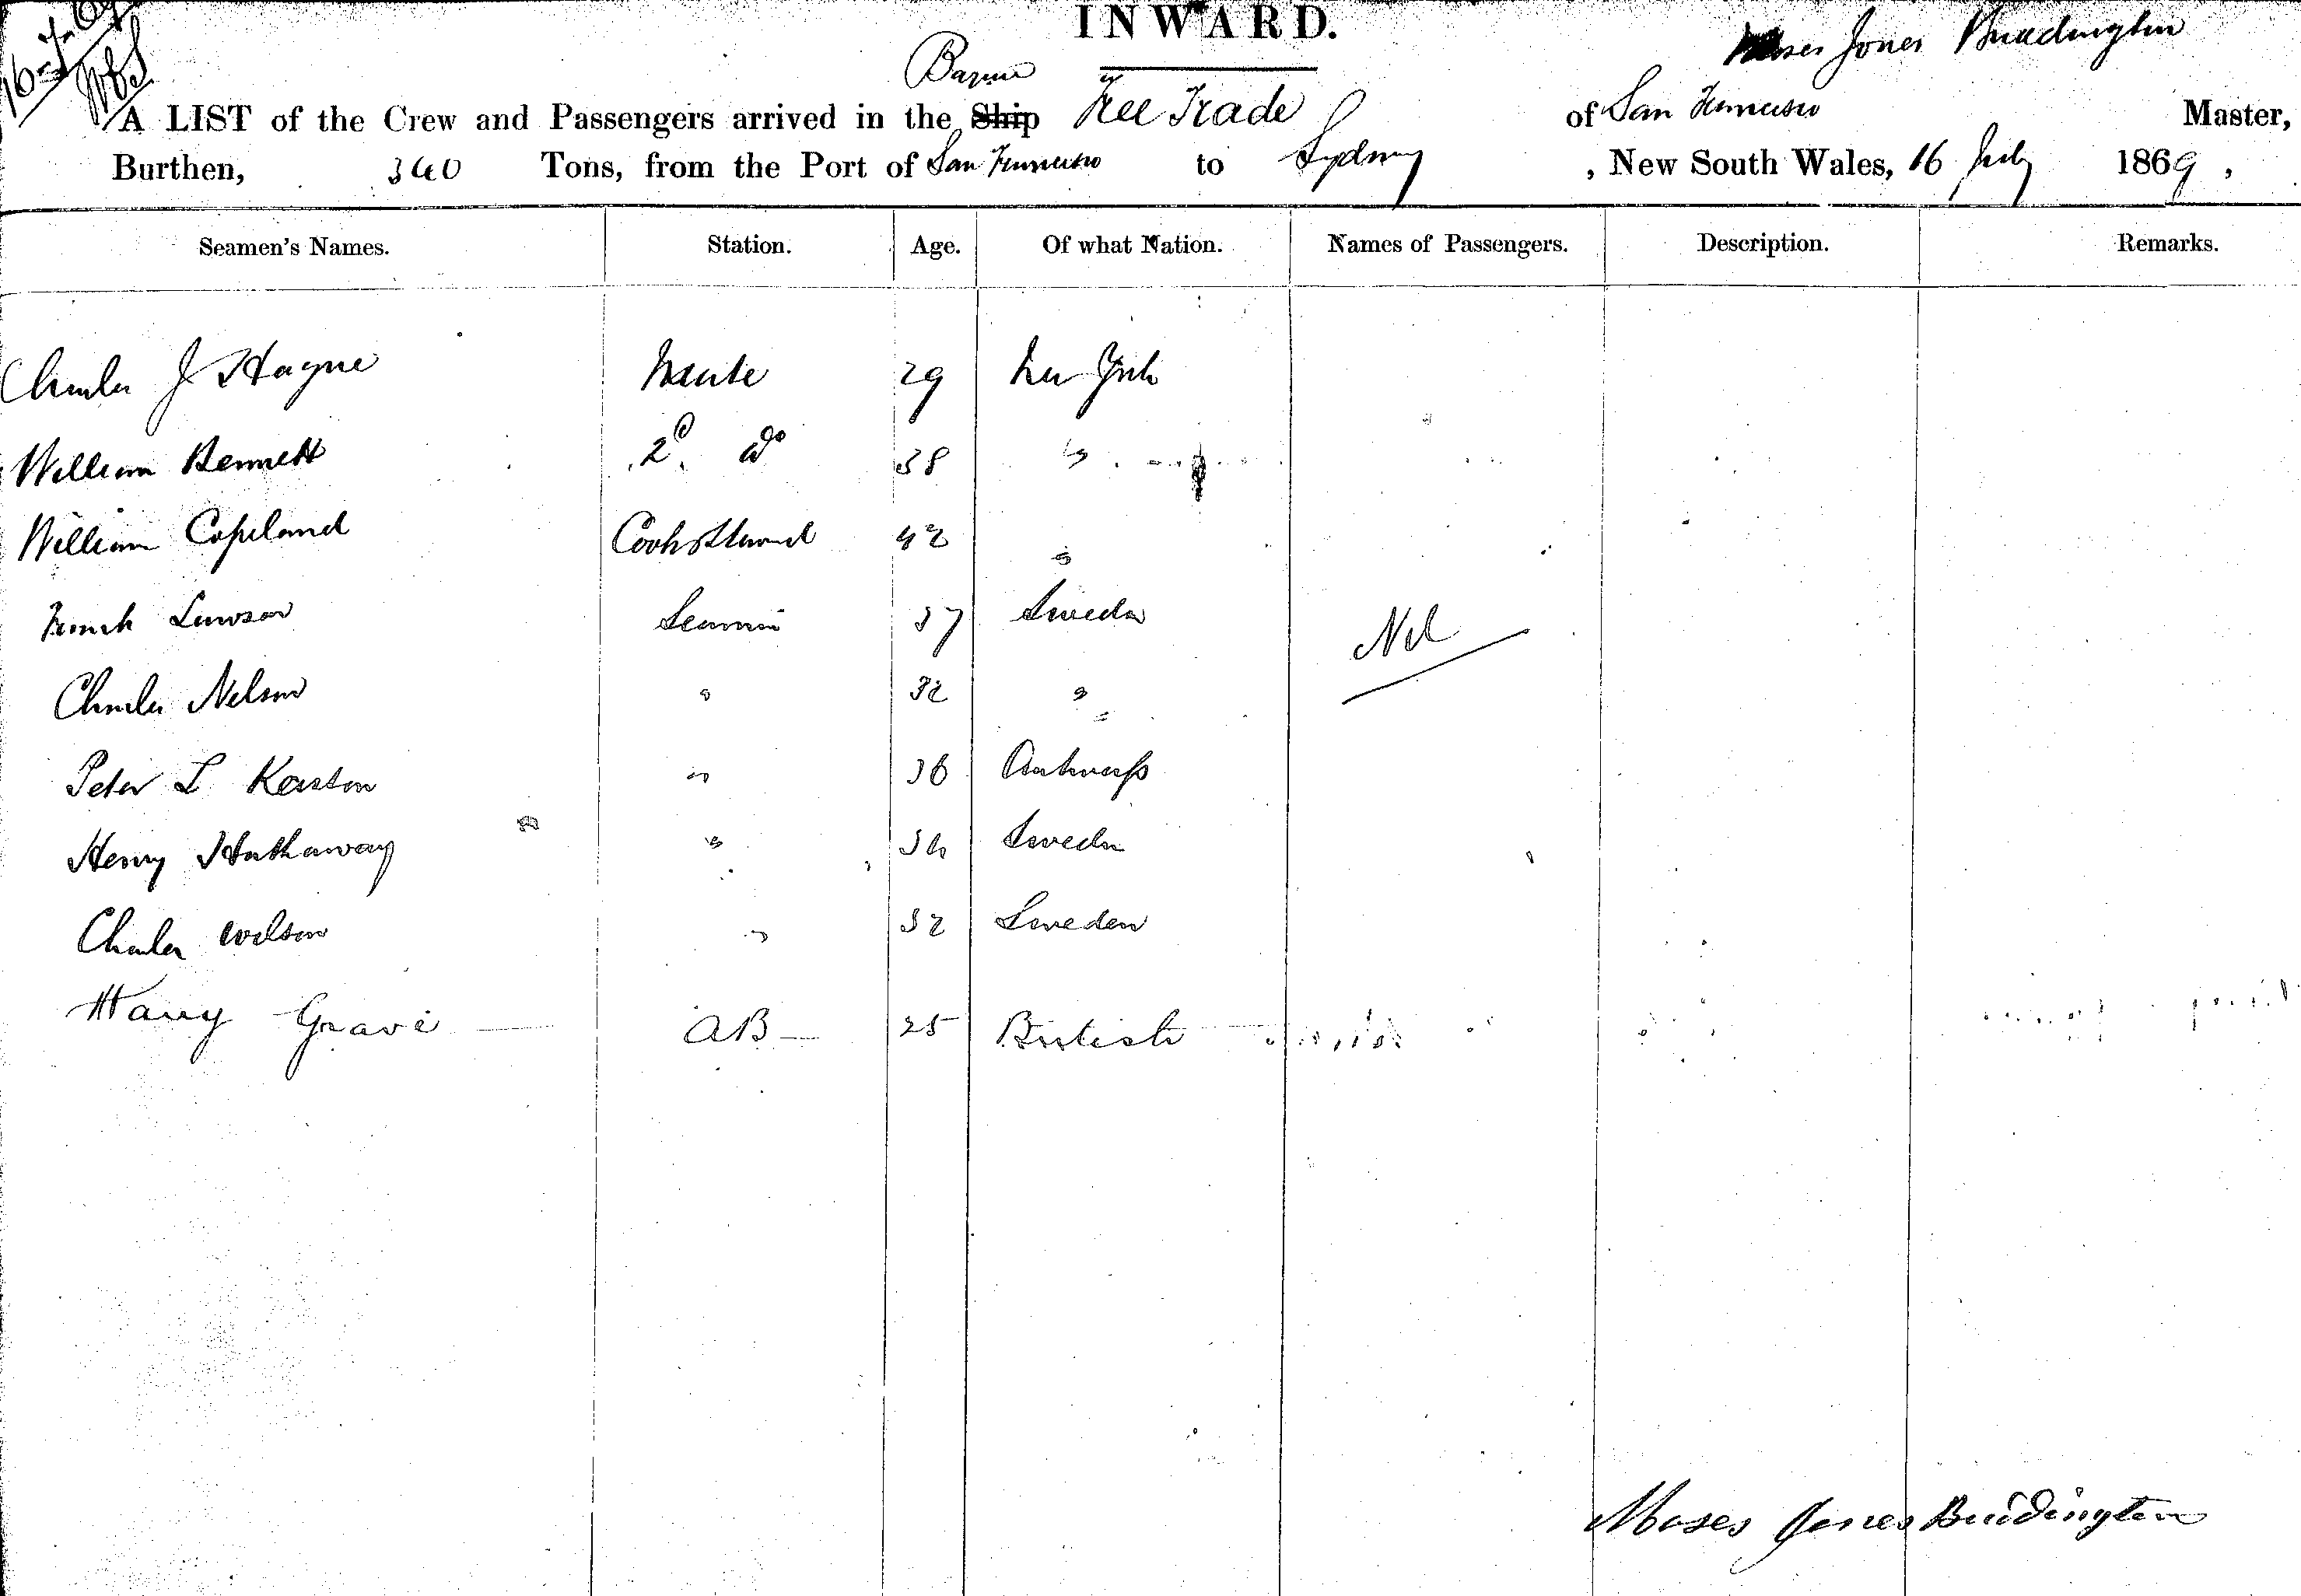 16-7-69
INWARD.
Moses Jones Buddington
A LIST of the Crew and Passengers arrived in the Ship Free Trade of San Francisco Master,
Burthen, 340 Tons, from the Port of San Francisco to Sydney , New South Wales, 16 July 1869 ,
Seamen's Names. Station. Age. Of what Nation. Names of Passengers. Description. Remarks.
Charles J Hagne Mate 29 New York
William Bennett 2d do 38 "
William Copeland Cook & Steward 42 "
Frank Lawson Seaman 37 Sweden
Charles Nelson " 32 " Nil
Peter L Karston " 36 Antwerp
Henry Hathaway " 34 Sweden
Charles Wilson " 32 Sweden
Harry Grave AB 25 British
Moses Jones Buddington